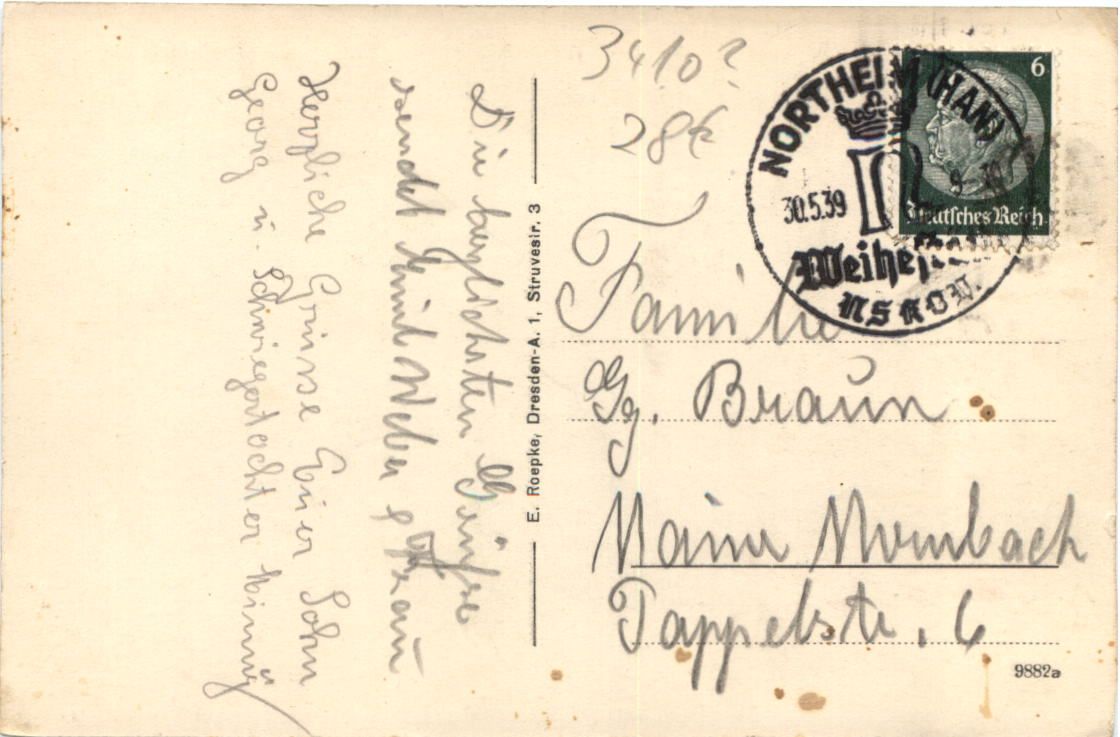 Die herzlichsten Grüsse
sendet Emil Weber u. Frau
Herzliche Grüsse Euer Sohn
Georg u. Schwiegertochter Minni
E. Roepke, Dresden-A. 1, Struvestr. 3
3410?
28€
NORTHEIM (HAN)
30.5.39
9
Weihe
NSKOV.
6
Deutsches Reich
Familie
Gg. Braun
Mainz Mombach
Pappelstr. 6
9882a